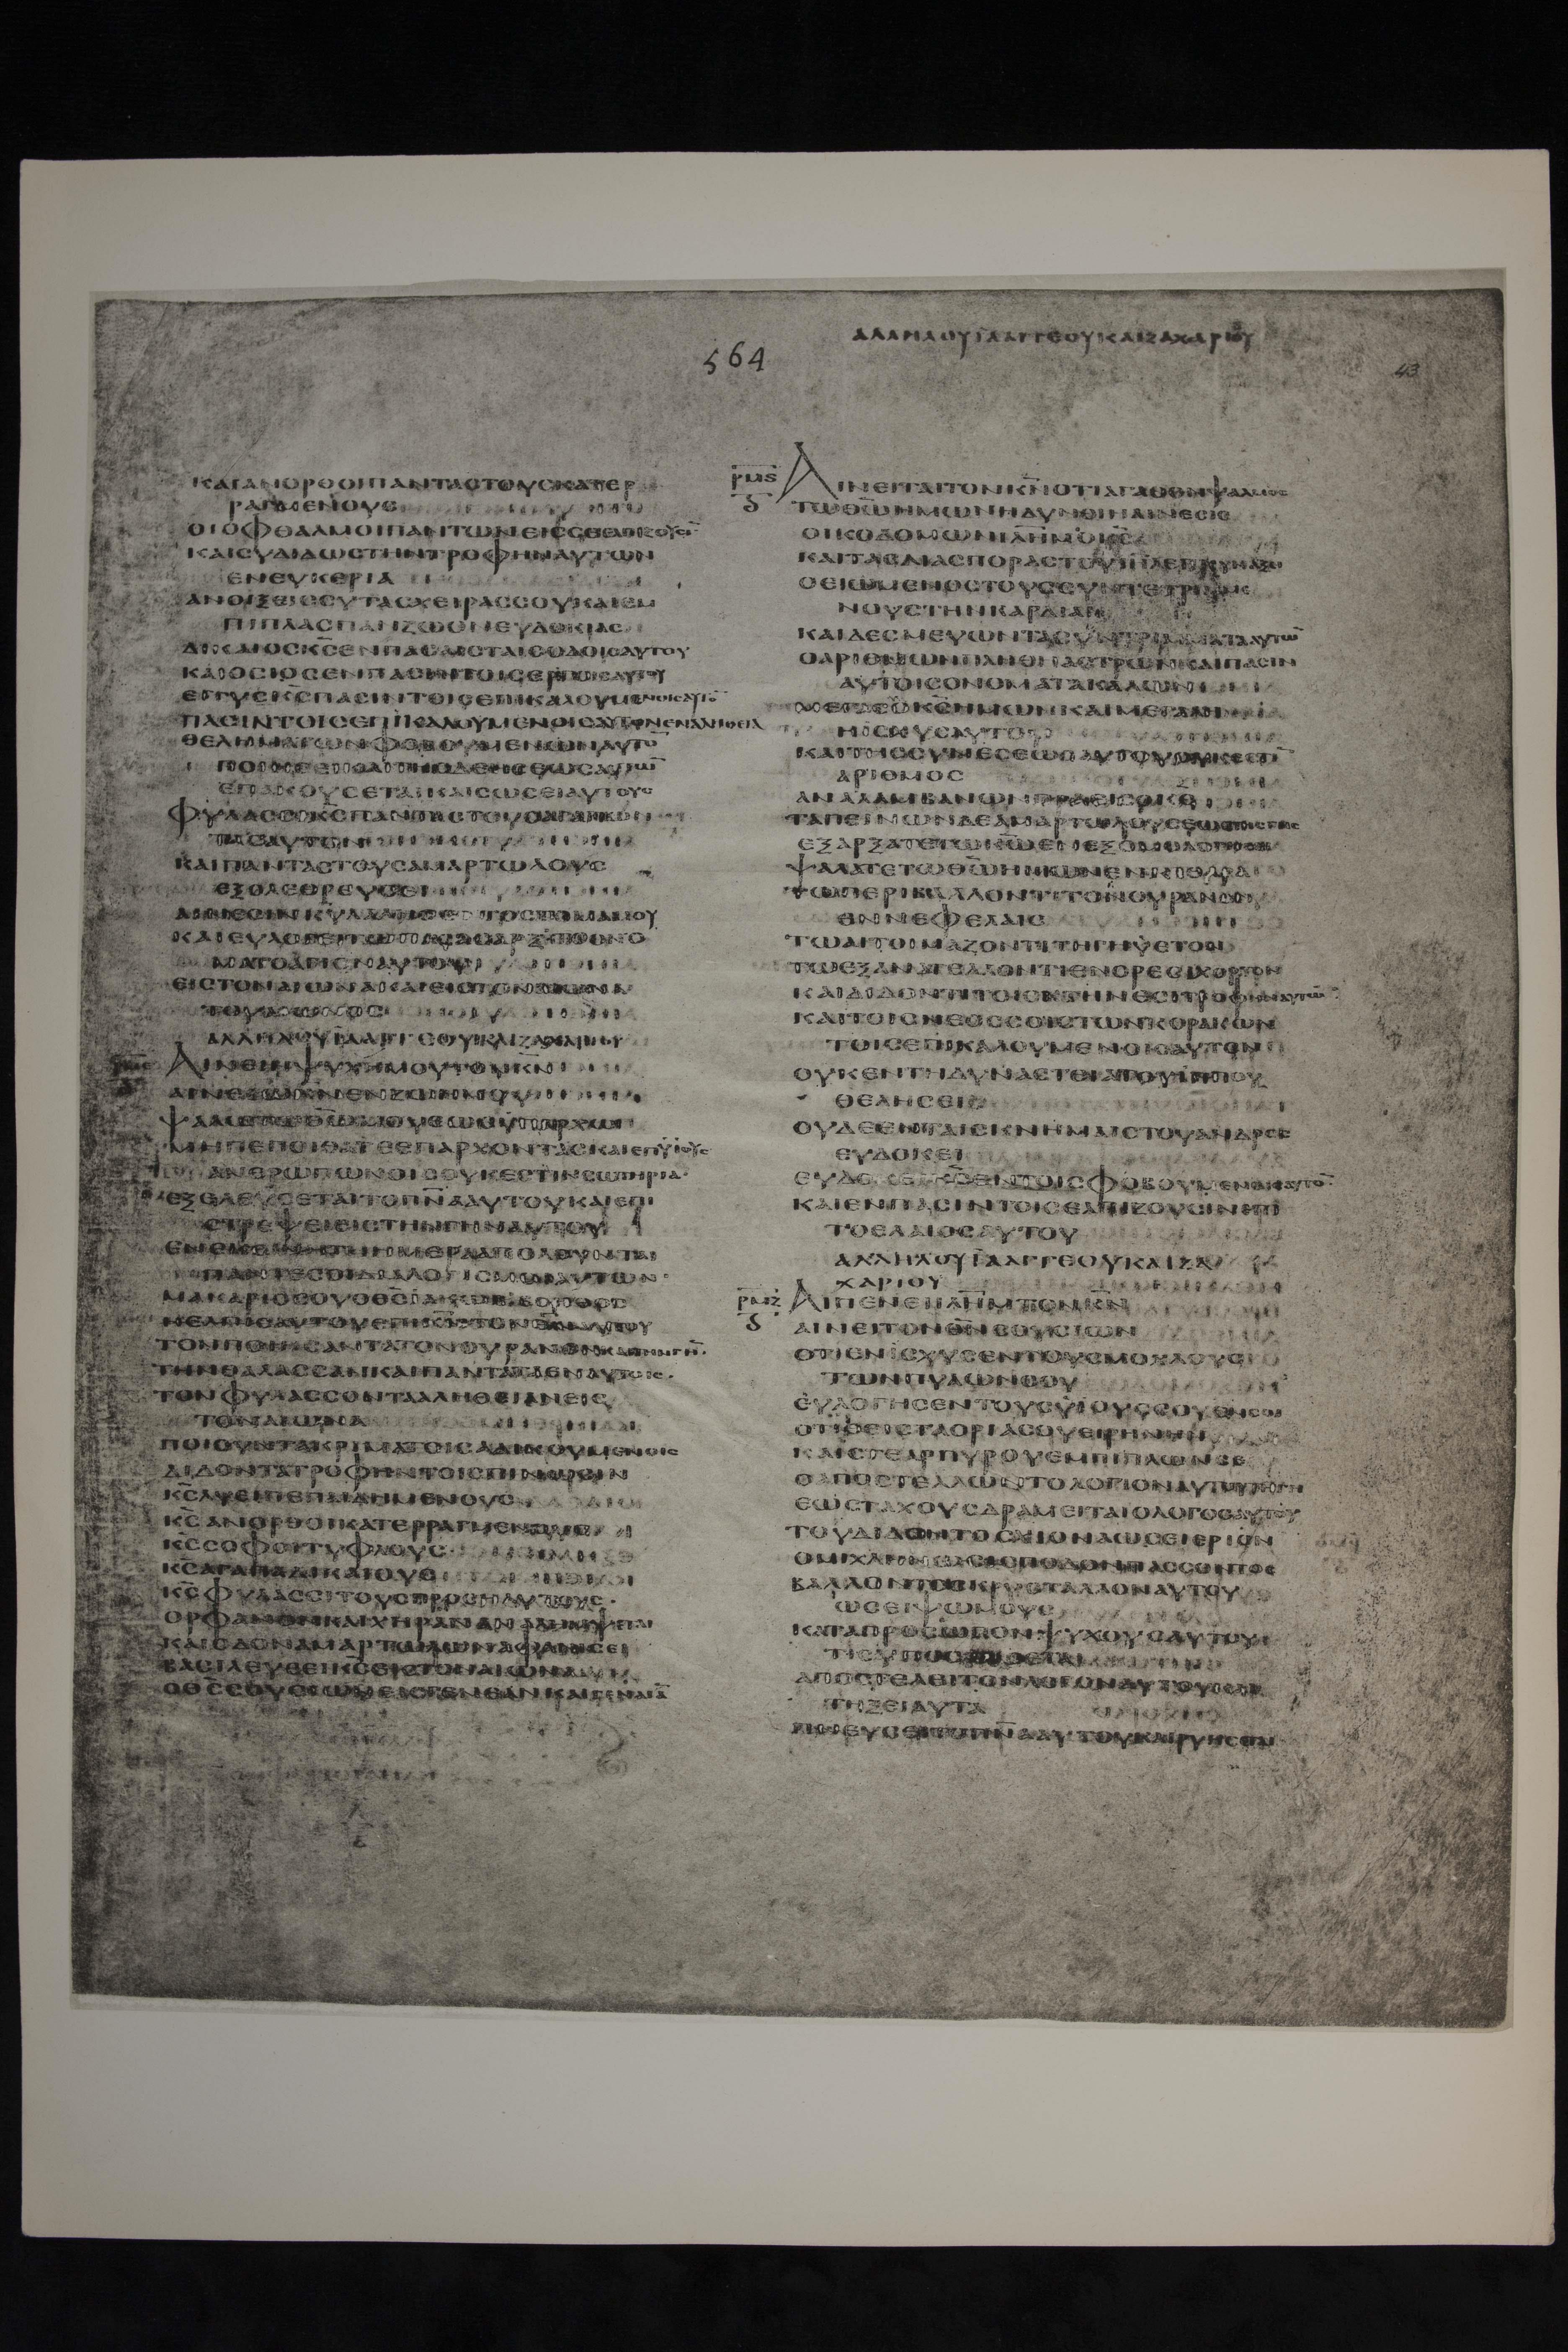 ΑΛΛΗΛΟΥΪΑΑΓΓΕΟΥΚΑΙΖΑΧΑΡΙΟΥ
564
43
ΚΑΙΑΝΟΡΘΟΙΠΑΝΤΑΣΤΟΥΣΚΑΤΕΡ
ΡΑΓΜΕΝΟΥΣ
ΟΙΟΦΘΑΛΜΟΙΠΑΝΤΩΝΕΙΣΣΕ
ΚΑΙΣΥΔΙΔΩΣΤΗΝΤΡΟΦΗΝΑΥΤΩΝ
ΕΝΕΥΚΕΡΙΑ
ΑΝΟΙΞΕΙΣΣΥΤΑΣΧΕΙΡΑΣΣΟΥΚΑΙΕΜ
ΠΙΠΛΑΣΠΑΝΖΩΟΝΕΥΔΟΚΙΑΣ
ΔΙΚΑΙΟΣΚ̅Σ̅ΕΝΠΑΣΑΙΣΤΑΙΣΟΔΟΙΣΑΥΤΟΥ
ΚΑΙΟΣΙΟΣΕΝΠΑΣΙΝΤΟΙΣΕΡΓΟΙΣΑΥΤΟΥ
ΕΓΓΥΣΚ̅Σ̅ΠΑΣΙΝΤΟΙΣΕΠΙΚΑΛΟΥΜΕΝΟΙΣΑΥΤΟ̅
ΠΑΣΙΝΤΟΙΣΕΠΙΚΑΛΟΥΜΕΝΟΙΣΑΥΤΟΝΕΝΑΛΗΘΕΙΑ
ΘΕΛΗΜΑΤΩΝΦΟΒΟΥΜΕΝΩΝΑΥΤΟ̅
ΕΠΑΚΟΥΣΕΤΑΙΚΑΙΣΩΣΕΙΑΥΤΟΥΣ
ΦΥΛΑΣΣΕΙΚ̅Σ̅ΠΑΝΤΑΣΤΟΥΣΑΓΑΠΩΝ
ΤΑΣΑΥΤΟΝ
ΚΑΙΠΑΝΤΑΣΤΟΥΣΑΜΑΡΤΩΛΟΥΣ
ΕΞΟΛΕΘΡΕΥΣΕΙ
ΑΙΝΕΣΙΝΚ̅Υ̅ΛΑΛΗΣΕΙΤΟΣΤΟΜΑΜΟΥ
ΚΑΙΕΥΛΟΓΕΙΤΩΠΑΣΑΣΑΡΞΤΟΟΝΟ
ΜΑΤΟΑΓΙΟΝΑΥΤΟΥ
ΕΙΣΤΟΝΑΙΩΝΑΚΑΙΕΙΣΤΟΝΑΙΩΝΑ
ΤΟΥΑΙΩΝΟΣ
ΑΛΛΗΛΟΥΪΑΑΓΓΕΟΥΚΑΙΖΑΧΑΡΙΟΥ
ΑΙΝΕΙΗΨΥΧΗΜΟΥΤΟΝΚ̅Ν̅
ΑΙΝΕΣΩΚ̅Ν̅ΕΝΖΩΗΜΟΥ
ΨΑΛΩΤΩΘ̅Ω̅ΜΟΥΕΩΣΥΠΑΡΧΩ
ΜΗΠΕΠΟΙΘΑΤΕΕΠΑΡΧΟΝΤΑΣΚΑΙΕΠΥΪΟΥΣ
ΑΝΘΡΩΠΩΝΟΙΣΟΥΚΕΣΤΙΝΣΩΤΗΡΙΑ
ΕΞΕΛΕΥΣΕΤΑΙΤΟΠ̅Ν̅ΑΑΥΤΟΥΚΑΙΕΠΙ
ΣΤΡΕΨΕΙΕΙΣΤΗΝΓΗΝΑΥΤΟΥ
ΕΝΕΚΕΙΝΗΤΗΗΜΕΡΑΑΠΟΛΟΥΝΤΑΙ
ΠΑΝΤΕΣΟΙΔΙΑΛΟΓΙΣΜΟΙΑΥΤΩΝ
ΜΑΚΑΡΙΟΣΟΥΟΘ̅Σ̅ΙΑΚΩΒΒΟΗΘΟΣ
ΗΕΛΠΙΣΑΥΤΟΥΕΠΙΚ̅Ν̅ΤΟΝΘ̅Ν̅ΑΥΤΟΥ
ΤΟΝΠΟΙΗΣΑΝΤΑΤΟΝΟΥΡΑΝΟΝΚΑΙΤΗΝΓΗ̅
ΤΗΝΘΑΛΑΣΣΑΝΚΑΙΠΑΝΤΑΤΑΕΝΑΥΤΟΙΣ
ΤΟΝΦΥΛΑΣΣΟΝΤΑΑΛΗΘΕΙΑΝΕΙΣ
ΤΟΝΑΙΩΝΑ
ΠΟΙΟΥΝΤΑΚΡΙΜΑΤΟΙΣΑΔΙΚΟΥΜΕΝΟΙΣ
ΔΙΔΟΝΤΑΤΡΟΦΗΝΤΟΙΣΠΙΝΩΣΙΝ
Κ̅Σ̅ΛΥΕΙΠΕΠΕΔΗΜΕΝΟΥΣ
Κ̅Σ̅ΑΝΟΡΘΟΙΚΑΤΕΡΡΑΓΜΕΝΟΥΣ
Κ̅Σ̅ΣΟΦΟΙΤΥΦΛΟΥΣ
Κ̅Σ̅ΑΓΑΠΑΔΙΚΑΙΟΥΣ
Κ̅Σ̅ΦΥΛΑΣΣΙΤΟΥΣΠΡΟΣΗΛΥΤΟΥΣ
ΟΡΦΑΝΟΝΚΑΙΧΗΡΑΝΑΝΑΛΗΜΨΕΤΑΙ
ΚΑΙΟΔΟΝΑΜΑΡΤΩΛΩΝΑΦΑΝΙΣΕΙ
ΒΑΣΙΛΕΥΣΕΙΚ̅Σ̅ΕΙΣΤΟΝΑΙΩΝΑ
ΟΘ̅Σ̅ΣΟΥΣΙΩΝΕΙΣΓΕΝΕΑΝΚΑΙΓΕΝΕΑ̅
ΡΜϚ
ΑΙΝΕΙΤΑΙΤΟΝΚ̅Ν̅ΟΤΙΑΓΑΘΟΝΨΑΛΜΟΣ
ΤΩΘ̅Ω̅ΗΜΩΝΗΔΥΝΘΙΗΑΙΝΕΣΙΣ
ΟΙΚΟΔΟΜΩΝΙΛΗΜΟΚ̅Σ̅
ΚΑΙΤΑΣΔΙΑΣΠΟΡΑΣΤΟΥΙΗΛΕΠΙΣΥΝΑΞΕΙ
ΟΕΙΩΜΕΝΟΣΤΟΥΣΣΥΝΤΕΤΡΙΜΜΕ
ΝΟΥΣΤΗΝΚΑΡΔΙΑΝ
ΚΑΙΔΕΣΜΕΥΩΝΤΑΣΥΝΤΡΙΜΜΑΤΑΑΥΤΩ̅
ΟΑΡΙΘΜΩΝΠΛΗΘΗΑΣΤΡΩΝΚΑΙΠΑΣΙΝ
ΑΥΤΟΙΣΟΝΟΜΑΤΑΚΑΛΩΝ
ΜΕΓΑΣΟΚ̅Σ̅ΗΜΩΝΚΑΙΜΕΓΑΛΗ
ΗΙΣΧΥΣΑΥΤΟΥ
ΚΑΙΤΗΣΣΥΝΕΣΕΩΣΑΥΤΟΥΟΥΚΕΣΤΙ̅
ΑΡΙΘΜΟΣ
ΑΝΑΛΑΜΒΑΝΩΝΠΡΑΕΙΣΟΚ̅Σ̅
ΤΑΠΕΙΝΩΝΔΕΑΜΑΡΤΩΛΟΥΣΕΩΣΤΗΣΓΗΣ
ΕΞΑΡΞΑΤΕΤΩΚ̅Ω̅ΕΝΕΞΟΜΟΛΟΓΗΣΕΙ
ΨΑΛΑΤΕΤΩΘ̅Ω̅ΗΜΩΝΕΝΚΙΘΑΡΑ
ΤΩΠΕΡΙΒΑΛΛΟΝΤΙΤΟΝΟΥΡΑΝΟΝ
ΕΝΝΕΦΕΛΑΙΣ
ΤΩΑΙΤΟΙΜΑΖΟΝΤΙΤΗΓΗΥΕΤΟΝ
ΤΩΕΞΑΝΑΤΕΛΛΟΝΤΙΕΝΟΡΕΣΙΧΟΡΤΟΝ
ΚΑΙΔΙΔΟΝΤΙΤΟΙΣΚΤΗΝΕΣΙΤΡΟΦΗΝΑΥΤΩ̅
ΚΑΙΤΟΙΣΝΕΟΣΣΟΙΣΤΩΝΚΟΡΑΚΩΝ
ΤΟΙΣΕΠΙΚΑΛΟΥΜΕΝΟΙΣΑΥΤΟΝ
ΟΥΚΕΝΤΗΔΥΝΑΣΤΕΙΑΤΟΥΙΠΠΟΥ
ΘΕΛΗΣΕΙ
ΟΥΔΕΕΝΤΑΙΣΚΝΗΜΑΙΣΤΟΥΑΝΔΡΟΣ
ΕΥΔΟΚΕΙ
ΕΥΔΟΚΕΙΚ̅Σ̅ΕΝΤΟΙΣΦΟΒΟΥΜΕΝΟΙΣΑΥΤΟ̅
ΚΑΙΕΝΠΑΣΙΝΤΟΙΣΕΛΠΙΖΟΥΣΙΝΕΠΙ
ΤΟΕΛΑΙΟΣΑΥΤΟΥ
ΑΛΛΗΛΟΥΪΑΑΓΓΕΟΥΚΑΙΖΑ
ΧΑΡΙΟΥ
ΡΜΖ
ΑΙΠΕΝΕΙΙΛΗΜΤΟΝΚ̅Ν̅
ΑΙΝΕΙΤΟΝΘ̅Ν̅ΣΟΥΣΙΩΝ
ΟΤΙΕΝΙΣΧΥΣΕΝΤΟΥΣΜΟΧΛΟΥΣ
ΤΩΝΠΥΛΩΝΣΟΥ
ΕΥΛΟΓΗΣΕΝΤΟΥΣΥΪΟΥΣΣΟΥΕΝΣΟΙ
ΟΤΙΘΕΙΣΤΑΟΡΙΑΣΟΥΕΙΡΗΝΗΝ
ΚΑΙΣΤΕΑΡΠΥΡΟΥΕΜΠΙΠΛΩΝΣΕ
ΟΑΠΟΣΤΕΛΛΩΝΤΟΛΟΓΙΟΝΑΥΤΟΥΤΗΓΗ
ΕΩΣΤΑΧΟΥΣΔΡΑΜΕΙΤΑΙΟΛΟΓΟΣΑΥΤΟΥ
ΤΟΥΔΙΔΟΝΤΟΣΧΙΟΝΑΩΣΕΙΕΡΙΟΝ
ΟΜΙΧΛΗΝΩΣΕΙΣΠΟΔΟΝΠΑΣΣΟΝΤΟΣ
ΒΑΛΛΟΝΤΟΣΚΡΥΣΤΑΛΛΟΝΑΥΤΟΥ
ΩΣΕΙΨΩΜΟΥΣ
ΚΑΤΑΠΡΟΣΩΠΟΝΨΥΧΟΥΣΑΥΤΟΥ
ΤΙΣΥΠΟΣΤΗΣΕΤΑΙ
ΑΠΟΣΤΕΛΕΙΤΟΝΛΟΓΟΝΑΥΤΟΥΚΑΙ
ΤΗΞΕΙΑΥΤΑ
ΠΝΕΥΣΕΙΤΟΠ̅Ν̅ΑΑΥΤΟΥΚΑΙΡΥΗΣΕΤΑΙ